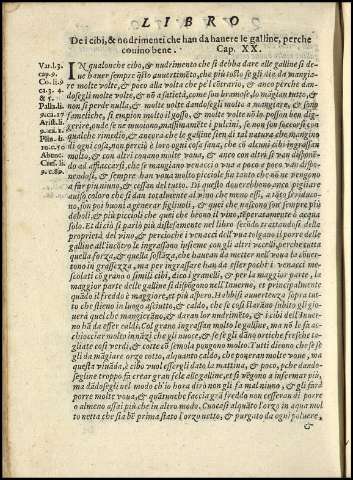 LIBRO
De i cibi, & nodrimenti che han da hauere le galline, perche
couino bene. Cap. XX.
Var. l. 3.
cap. 9.
Co. li. 9
ca. 3. 4
& 5.
Palla. li.
9. ca. 27
Arist. li.
9. ca. 1.
Plin. li.
10. c. 50
Abenc.
Cres. li.
9. c. 89.
IN qualonche cibo, & nodrimento che si debba dare alle galline si de
ue hauer sempre q̃sto auuertimẽto, che più tosto se gli dia da mangia-
re molte volte, & poco alla volta che p'l cõtrario, & anco perche dan
dosegli molte volte, & nõ a satietà, come son bramose lo mãgian tutto, &
non si perde nulla, & molte volte dandosegli molto a mangiare, & son
fameliche, si empion molto il gosso, & molte volte nõ lo posson ben dige-
rire, onde se ne muoiono, massimamẽte i pulcini, se non son soccorsi con
qualche rimedio, & ancora che le galline sien di tal natura che mangino
di ogni cosa, non perciò è loro ogni cosa sana, che cõ alcuni cibi, che man
gian, couan molto, & con altri couano molte voua, & anco con altri si van disponen
do ad affiaccarsi, che se mangiano venacci a vua a poco a poco van dispo-
nendosi, & sempre han voua molto picciole fin tanto che nõ ne vengono
a far più niuno, & cessan del tutto. Di questo auuerrebbono anco pigliare
auiso coloro che si dan totalmente al vino che meno essi, a tãto si reduco-
no, son poi buoni a generar figliuoli, & quei che nascono son sempre più
deboli, & più piccioli che quei che beono il vino tẽperatamente ò acqua
solo. Et di ciò si parlò più distesamente nel libro secõdo trattãdosi delle
proprietà del vino, & perciochè i venacci dell'vua tolgano il porre delle
galline all'incõtro le ingrassano insieme con gli altri vccelli, perche tutta
quella forza, & quella sostãza, che haueano da metter nell'voua la conuer
tono in grassezza, ma per ingrassare han da esser pochi i venacci me-
scolati cõ grano ò simili cibi, dico i granelli, & per la maggior parte, la
maggior parte delle galline si dispõgono nell'Inuerno, et principalmente
quãdo il freddo è maggiore, et più aspero. Hebbisi auuertenza sopra tut-
to che stieno in luogo asciutto, & caldo, che se così starãno subito gli gio-
uerà quel che mangierãno, & daran lor nudrimẽto, & i cibi dell'Inuer-
no hã da esser caldi. Col grano ingrassan molto le galline, ma nõ lo fa ac-
chiocciar molto innãzi che gli nuoce, & se se gli dãno ortiche fresche to-
gliate così verdi, & cotte cõ semola pongono molto. Tutti dirono che se se
gli da mãgiare orzo cotto, alquanto caldo, che poneran molte voua, ma
questa viuãda, è cibo vuol essergli dato la mattina, & poco, pche dando-
segline troppo fa crear gran fele alle galline, et si vẽgono a infermar più,
ma dãdosegli nel modo ch'io hora dirò non gli fa mal niuno, & gli farà
porre molte voua, & quãtunche faccia grã freddo non cesseran di porre
o almeno assai più che in altro modo. Cuocasi alquãto l'orzo in aqua mol
to netta che sia bẽ prima stato l'orzo netto, & purgato da ogni poluere,
&